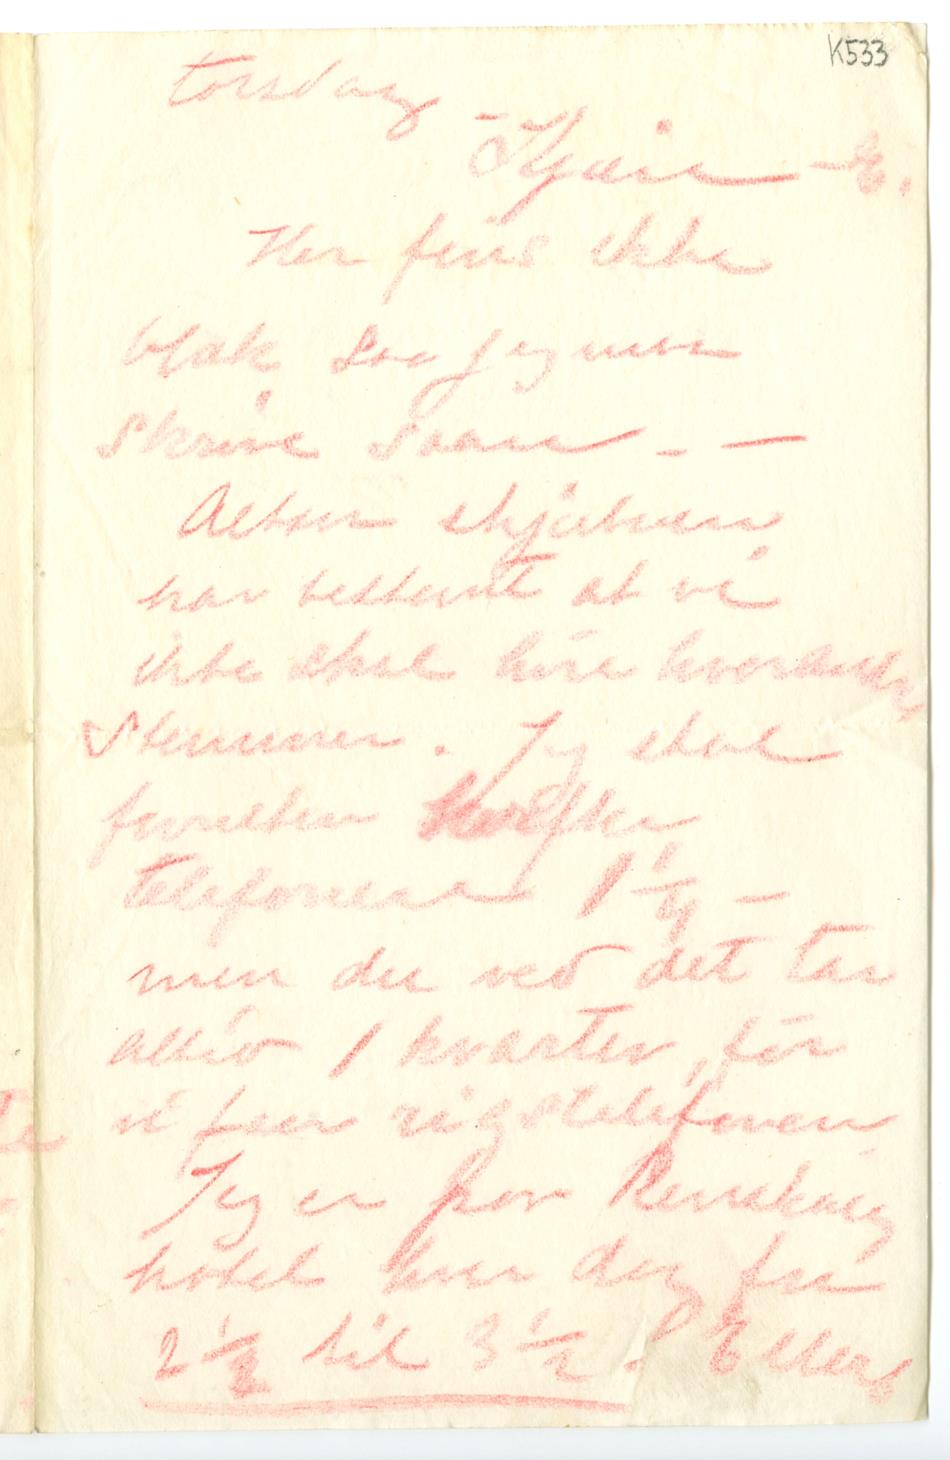 K533
Torsdag
- Kjære — E.
Her fins ikke
blæk saa jeg maa
skrive saan - —
Altsaa skjæbnen
har bestemt at vi
ikke skal høre hverandres
stemmer. Jeg skal
forsøke
telefonere 1 1/4 —
men du ved det tar
altid 1 kvarter, før
vi faar rigstelefonen
Jeg er paa
hotel hver dag fra
2 1/2 til 3 1/2. Ellers
te